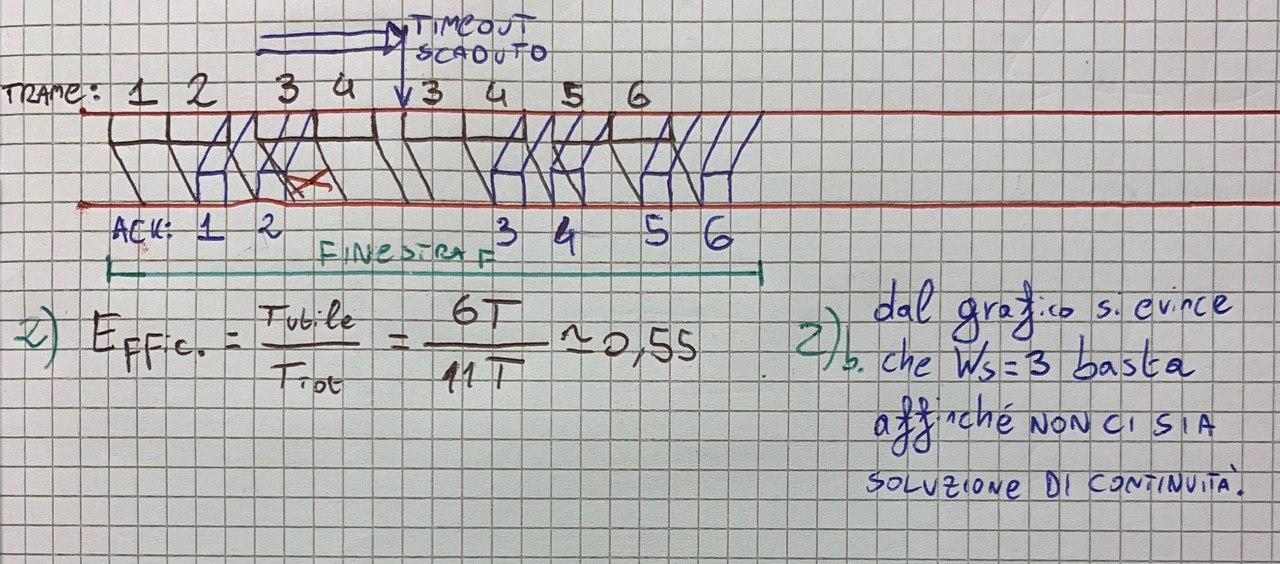 TIMEOUT
SCADUTO
TRAME: 1 2 3 4 3 4 5 6
ACK: 1 2 3 4 5 6
FINESTRA F
2) EFFIC. = Tutile / Ttot = 6T / 11T ≃ 0,55
2)b. dal grafico si evince
che Ws=3 basta
affinché NON CI SIA
SOLUZIONE DI CONTINUITÀ.